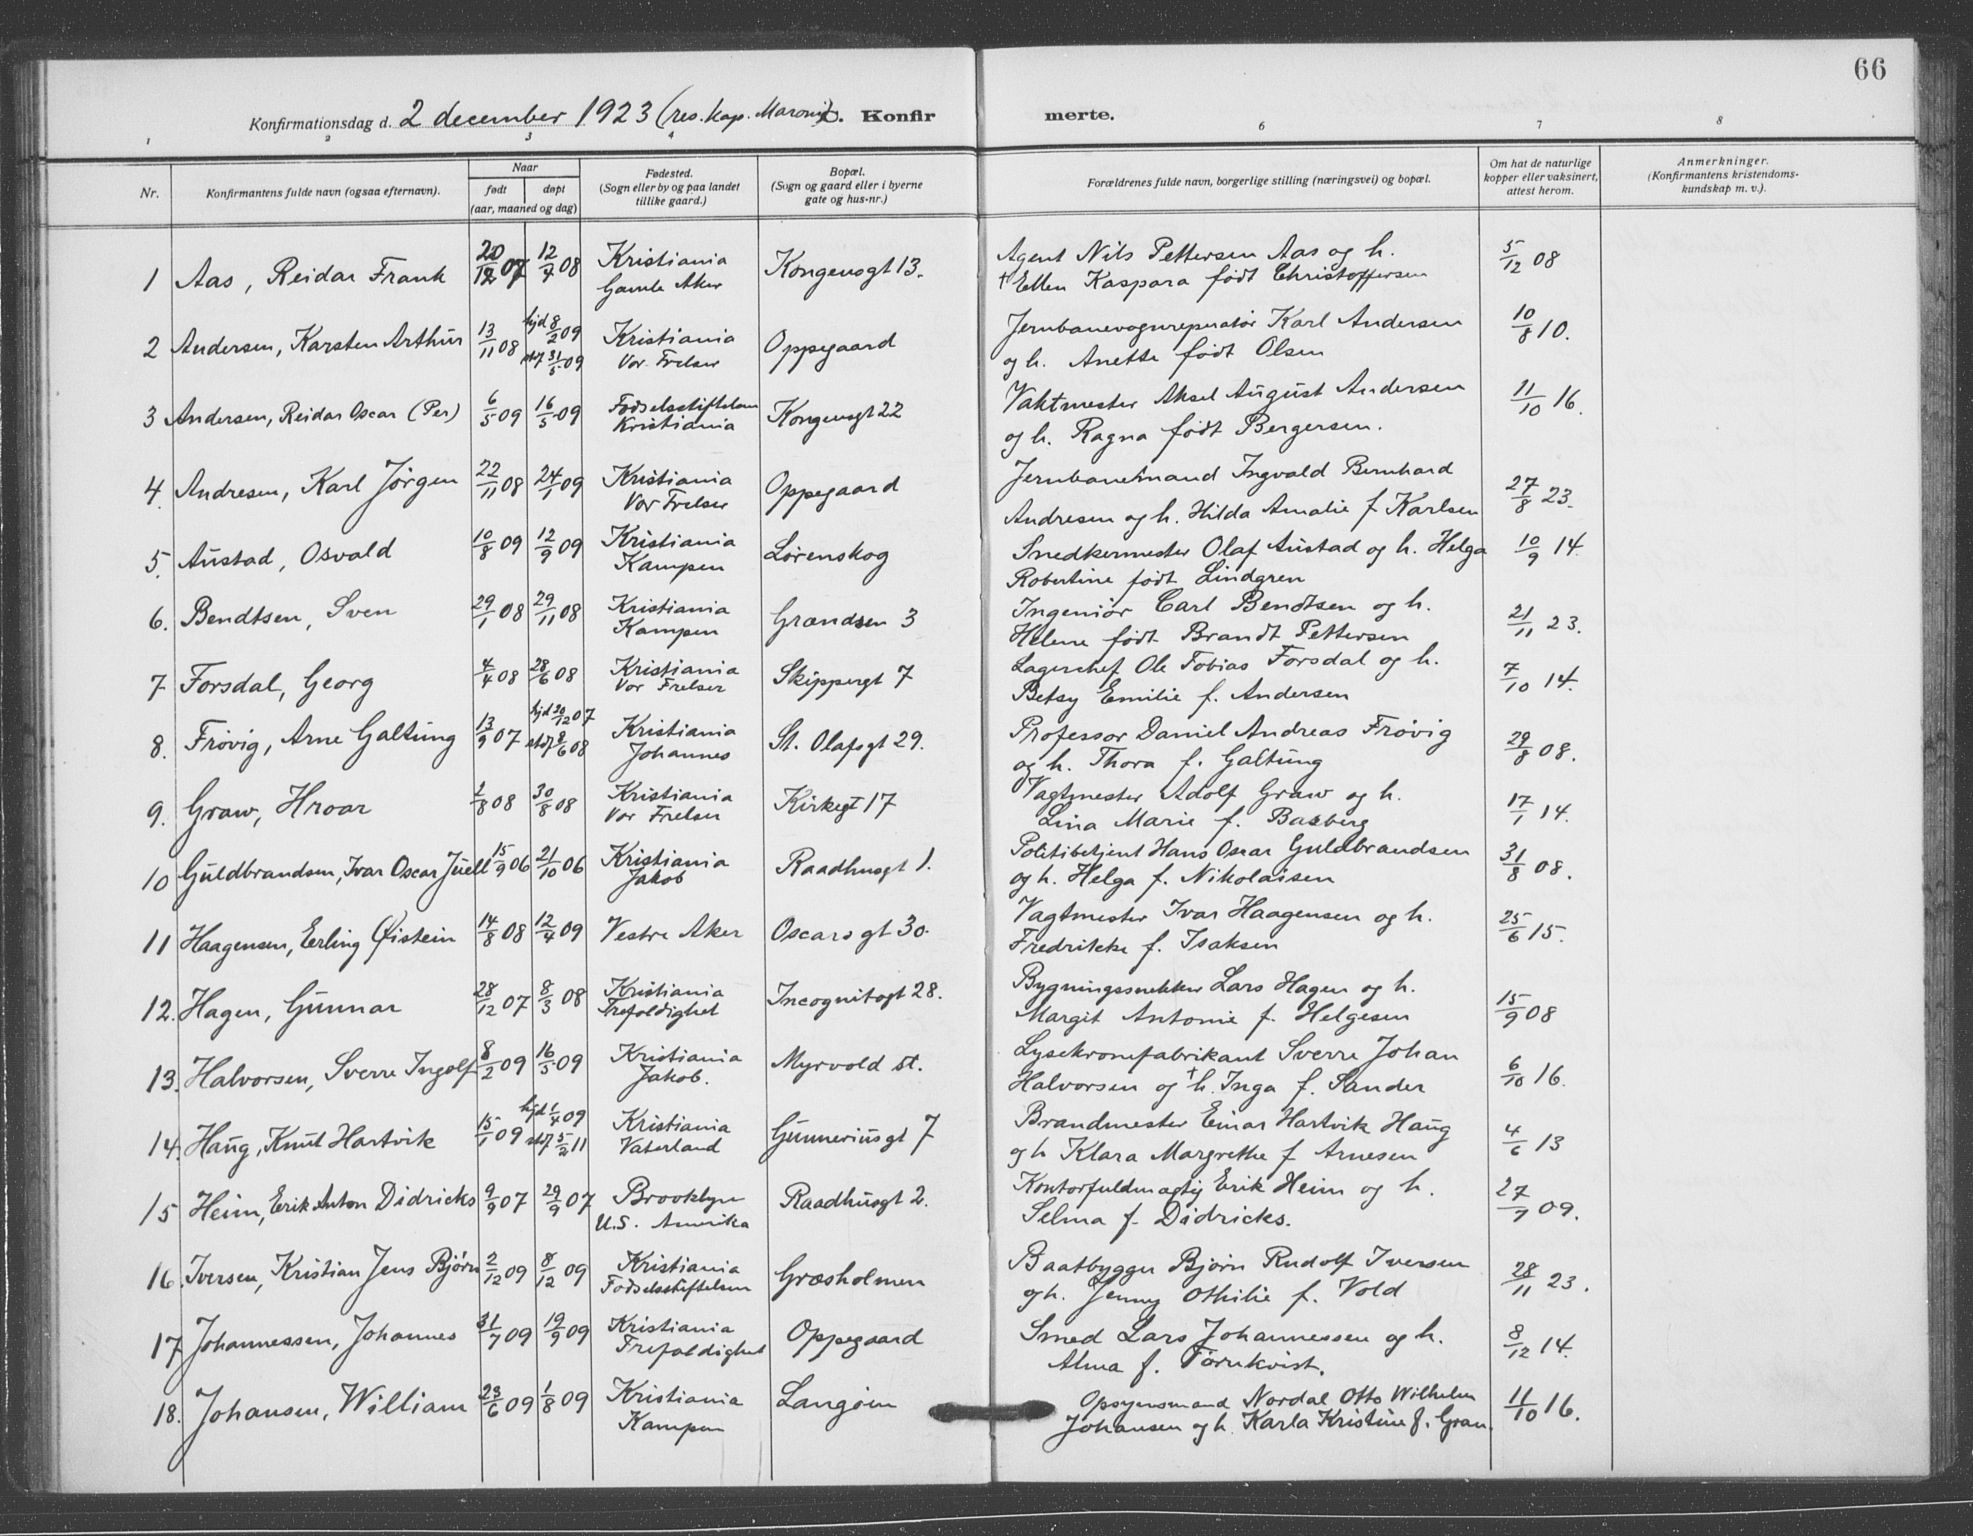 66
Konfirmationsdag d. 2 december 1923 (res. kap. Maroni) C. Konfirmerte.
1 2 3 4 6 7 8
Nr. Konfirmantens fulde navn (ogsaa efternavn). Naar født døpt (aar, maaned og dag) Fødested. (Sogn eller by og paa landet tillike gaard.) Bopæl. (Sogn og gaard eller i byerne gate og hus-nr.) Forældrenes fulde navn, borgerlige stilling (næringsvei) og bopæl. Om hat de naturlige kopper eller vaksinert, attest herom. Anmerkninger. (Konfirmantens kristendomskundskap m. v.).
1 Aas, Reidar Frank 20/12 07 12/4 08 Kristiania Gamle Aker Kongensgt 13. Agent Nils Pettersen Aas og h. † Ellen Kaspara født Christoffersen 5/12 08
2 Andersen, Karsten Arthur 13/11 08 hjd 8/2 09 stdf 31/5 09 Kristiania Vor Frelser Oppegaard Jernbanevognreparatør Karl Andersen og h. Anette født Olsen 10/8 10.
3 Andersen, Reidar Oscar (Per) 6/5 09 16/5 09 Fødselsstiftelsen Kristiania Kongensgt 22 Vaktmester Aksel August Andersen og h. Ragna født Bergersen. 11/10 16.
4. Andresen, Karl Jørgen 22/11 08 24/1 09 Kristiania Vor Frelser Oppegaard Jernbanemand Ingvald Bernhard Andresen og h. Hilda Amalie f Karlsen 27/8 23.
5. Austad, Osvald 10/8 09 12/9 09 Kristiania Kampen Lørenskog Snedkermester Olaf Austad og h. Helga Robertine født Lindgren 10/9 14.
6. Bendtsen, Sven 29/1 08 29/11 08 Kristiania Kampen Grændsen 3 Ingeniør Carl Bendtsen og h. Helene født Brandt Pettersen 21/11 23.
7 Forsdal, Georg 4/4 08 28/6 08 Kristiania Vor Frelser Skippergt 7 Lagerchef Ole Tobias Forsdal og h. Betsy Emilie f. Andersen 7/10 14.
8. Frøvig, Arne Galtung 13/9 07 hjd 30/12 07 stdf 8/6 08 Kristiania Johannes St. Olafsgt 29. Professor Daniel Andreas Frøvig og h. Thora f. Galtung 29/8 08.
9. Graw, Hroar 2/8 08 30/8 08 Kristiania Vor Frelser Kirkegt 17 Vagtmester Adolf Graw og h. Lina Marie f. Basberg 17/1 14.
10 Guldbrandsen, Ivar Oscar Juell 15/9 06 21/10 06 Kristiania Jakob Raadhusgt 1. Politibetjent Hans Oscar Guldbrandsen og h. Helga f. Nikolaisen 31/8 08.
11 Haagensen, Erling Øistein 14/8 08 12/4 09 Vestre Aker Oscars gt 30. Vagtmester Ivar Haagensen og h. Fredrikke f. Isaksen 25/6 15.
12. Hagen, Gunnar 28/12 07 8/3 08 Kristiania Trefoldighet Incognitogt 28. Bygningssnekker Lars Hagen og h. Margit Antonie f. Helgesen 15/9 08
13. Halvorsen, Sverre Ingolf 8/2 09 16/5 09 Kristiania Jakob. Myrvold st. Lysekronefabrikant Sverre Johan Halvorsen og † h. Inga f. Sander 6/10 16.
14. Haug, Knut Hartvik 15/1 09 hjd 1/4 09 stdf 5/2 11 Kristiania Vaterland Gunneriusgt 7 Brandmester Einar Hartvik Haug og h Klara Margrethe f Arnesen 4/6 13
15 Heim, Erik Anton Didricks 9/9 07 29/9 07 Brooklyn U.S. Amerika Raadhusgt 2. Kontorfuldmægtig Erik Heim og h. Selma f. Didricks. 27/7 09.
16. Iversen, Kristian Jens Bjørn 2/12 09 8/12 09 Kristiania Fødselsstiftelsen Græsholmen Baatbygger Bjørn Rudolf Iversen og h. Jenny Othilie f. Vold 28/11 23.
17 Johannessen, Johannes 31/7 09 19/9 09 Kristiania Trefoldighet Oppegaard Smed Lars Johannessen og h. Alma f. Tørnkvist. 8/12 14.
18. Johansen, William 23/6 09 1/8 09 Kristiania Kampen Langøien Opsynsmand Nordal Otto Wilhelm Johansen og h. Karla Kristine f. Gran. 11/10 16.